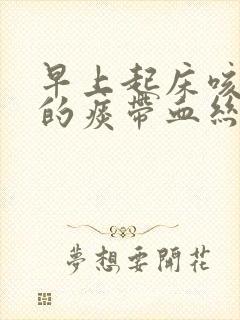 早上起床咳
的痰帶血絲
夢想要開花